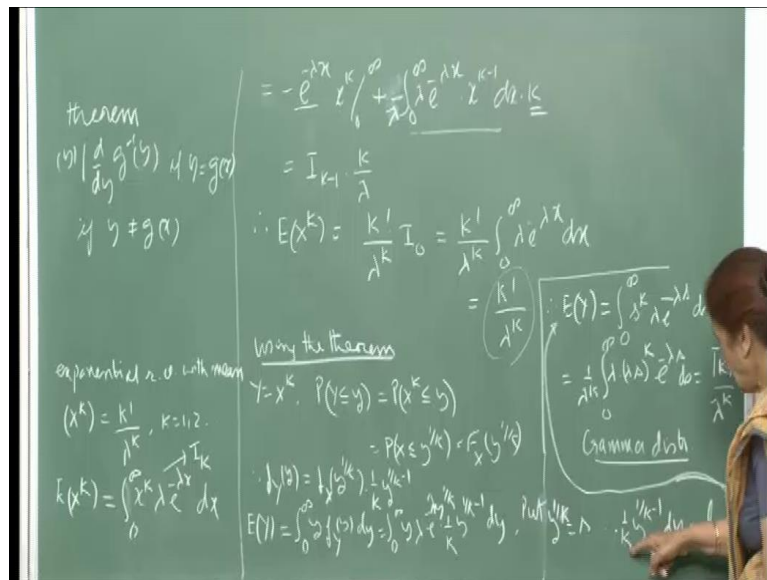 theorem
(y) | d/dy g⁻¹(y) if y = g(x)
if y ≠ g(x)
exponential r.v. with mean
(x^k) = k!/λ^k , k=1,2.
E(x^k) = ∫₀^∞ x^k λ e^{-λx} dx → I_k
= -e^{-λx} x^k |₀^∞ + 1/λ ∫₀^∞ λ e^{-λx} · x^{k-1} dx · k
= I_{k-1} · k/λ
∴ E(x^k) = k!/λ^k I₀ = k!/λ^k ∫₀^∞ λ e^{λx} dx
= k!/λ^k
using the theorem
Y = X^k , P(Y ≤ y) = P(X^k ≤ y)
= P(X ≤ y^{1/k}) = F_X(y^{1/k})
∴ f_Y(y) = f_X(y^{1/k}) · 1/k y^{1/k-1}
E(Y) = ∫₀^∞ y f_Y(y) dy = ∫₀^∞ y λ e^{-λy^{1/k}} · 1/k y^{1/k-1} dy , Put y^{1/k} = s · 1/k y^{1/k-1} dy
∴ E(Y) = ∫₀^∞ s^k λ e^{-λs} d
= 1/λ^k ∫₀^∞ λ (λs)^k e^{-λs} ds =
Gamma distn